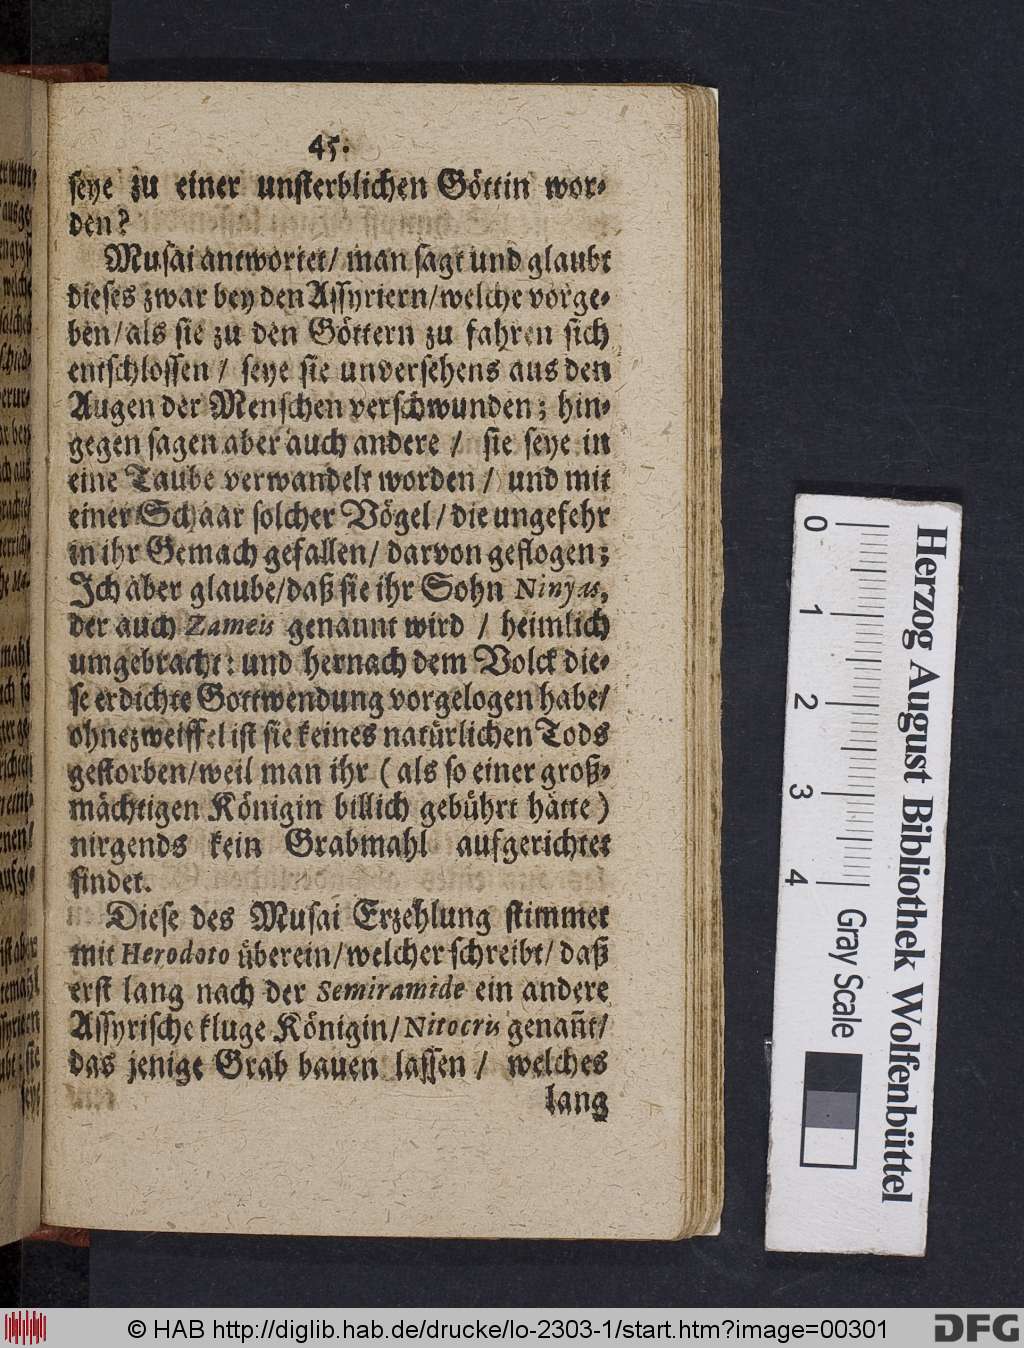 45.
ſeye zu einer unſterblichen Göttin wor-
den?
Muſai antwortet/ man ſagt und glaubt
dieſes zwar bey den Aſſyriern/welche vorge-
ben/als ſie zu den Göttern zu fahren ſich
entſchloſſen/ ſeye ſie unverſehens aus den
Augen der Menſchen verſchwunden; hin-
gegen ſagen aber auch andere / ſie ſeye in
eine Taube verwandelt worden/ und mit
einer Schaar ſolcher Vögel/ die ungefehr
in ihr Gemach gefallen/ darvon geflogen;
Ich aber glaube/daß ſie ihr Sohn Ninyas,
der auch Zameis genannt wird / heimlich
umgebracht: und hernach dem Volck die-
ſe erdichte Gottwendung vorgelogen habe/
ohnezweiffel iſt ſie keines natürlichen Tods
geſtorben/weil man ihr ( als ſo einer groß-
mächtigen Königin billich gebührt hätte )
nirgends kein Grabmahl aufgerichtet
findet.
Dieſe des Muſai Erzehlung ſtimmet
mit Herodoto überein/welcher ſchreibt/ daß
erſt lang nach der Semiramide ein andere
Aſſyriſche kluge Königin/Nitocris genañt/
das jenige Grab bauen laſſen / welches
lang
0
1
2
3
4
Gray Scale
Herzog August Bibliothek Wolfenbüttel
© HAB http://diglib.hab.de/drucke/lo-2303-1/start.htm?image=00301
DFG